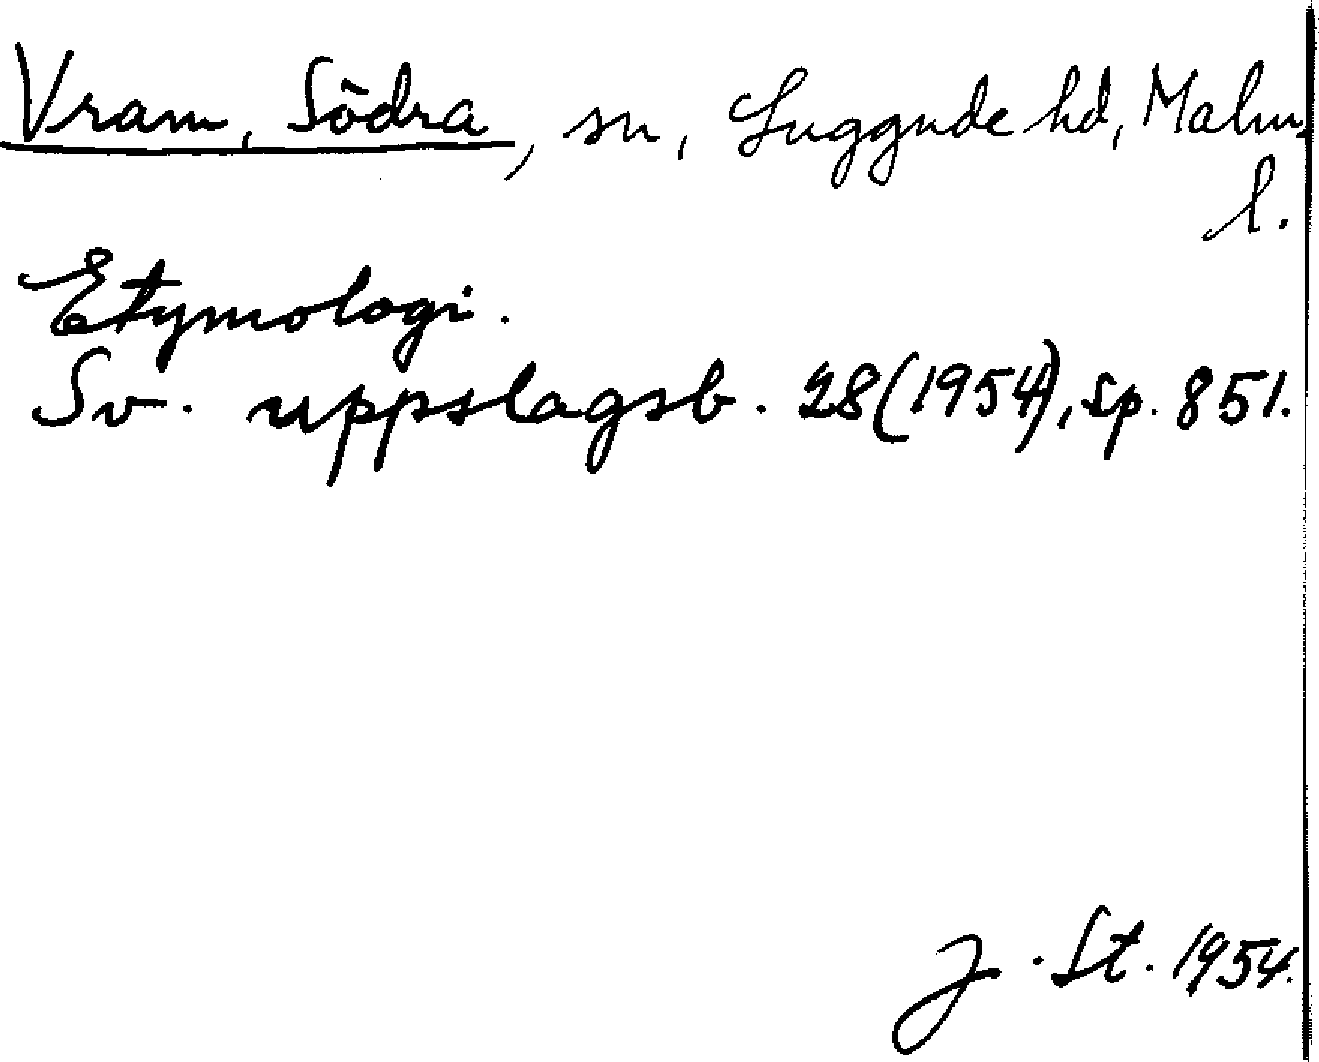 Vram, Södra, sn, Luggude hd, Malm.
l.
Etymologi.
Sv. uppslagsb. 28(1954), sp. 851.
J. St. 1954.